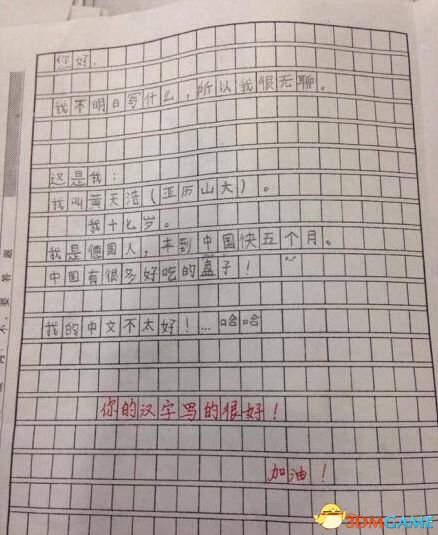 你好.
我不明白写什么，所以我很无聊。
这是我：
我叫黄天浩（亚历山大）。
我十七岁。
我是德国人，来到中国快五个月。
中国有很多好吃的盒子！
我的中文不太好！...哈哈
你的汉字写的很好！
加油！
不要答题
3DMGAME